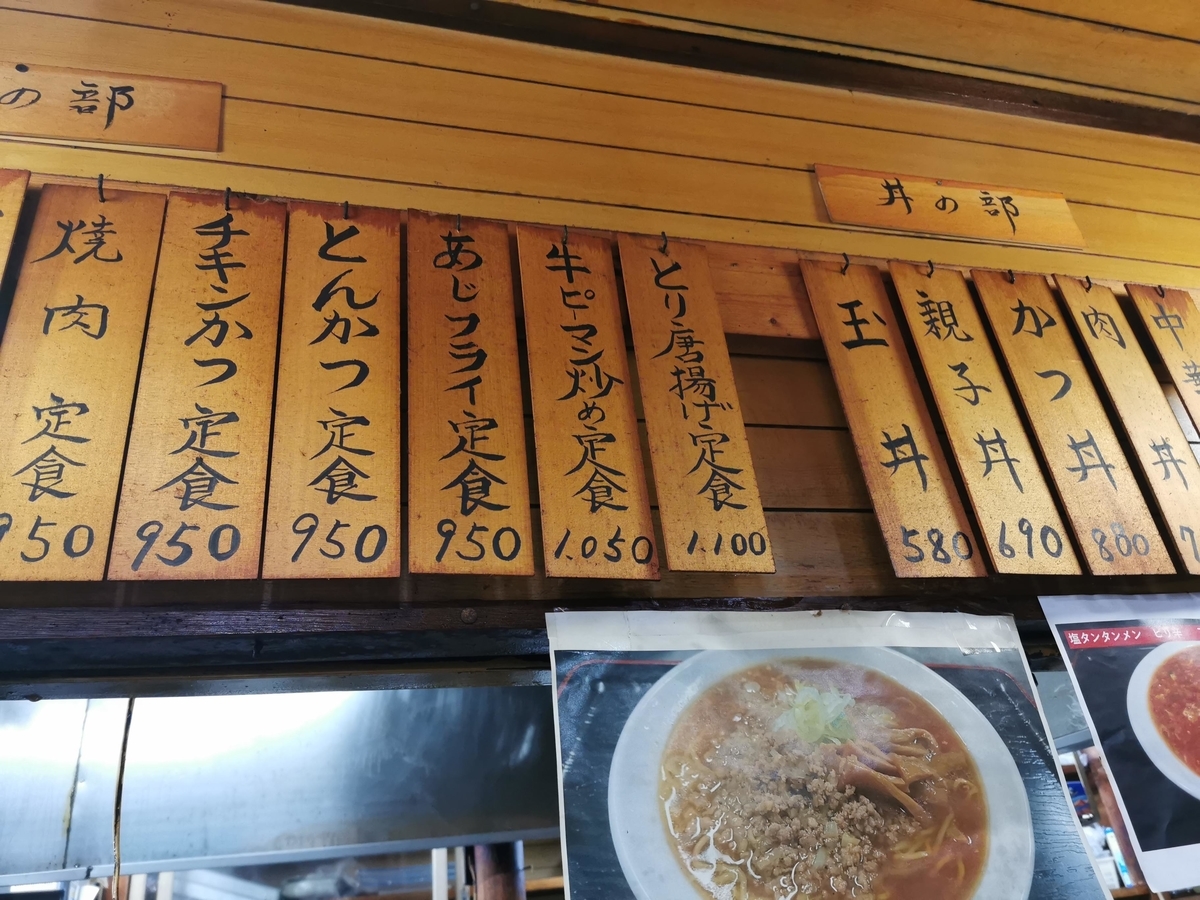 の部
焼肉定食
950
チキンかつ定食
950
とんかつ定食
950
あじフライ定食
950
牛ピーマン炒め定食
1.050
とり唐揚げ定食
1.100
丼の部
玉丼
580
親子丼
690
かつ丼
800
肉丼
7
中華
塩タンタンメン